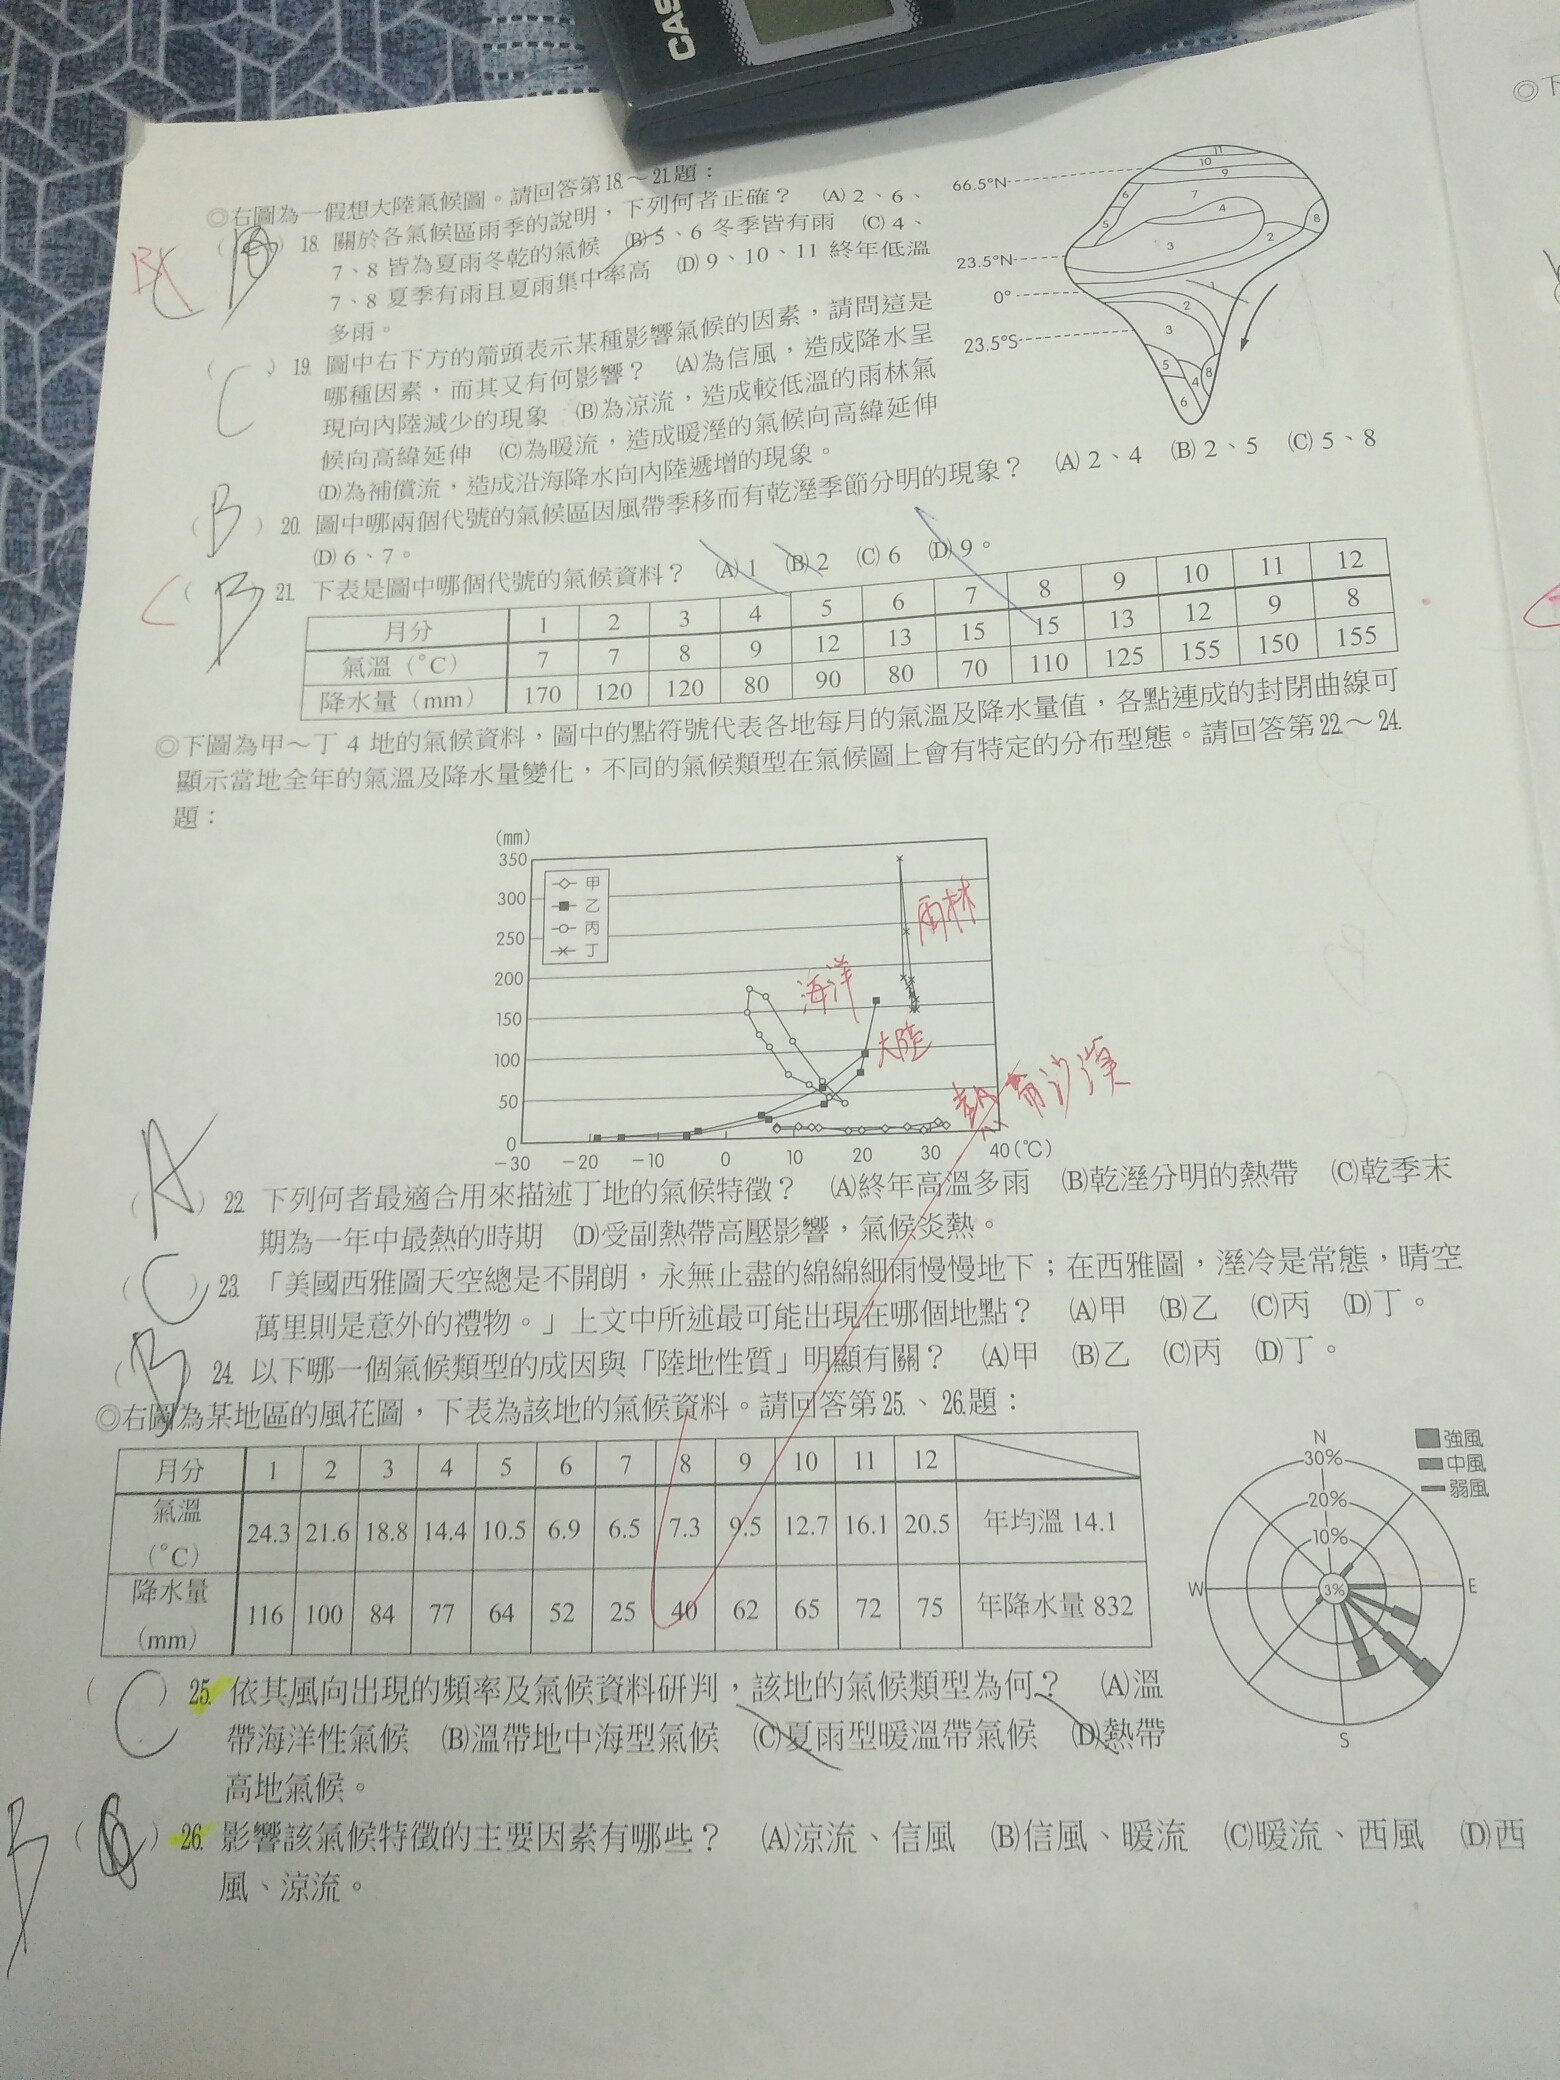 CAS
◎下
◎右圖為一假想大陸氣候圖。請回答第18.～21.題：
18. 關於各氣候區雨季的說明，下列何者正確？ (A) 2、6、
7、8 皆為夏雨冬乾的氣候 (B) 5、6 冬季皆有雨 (C) 4、
7、8 夏季有雨且夏雨集中率高 (D) 9、10、11 終年低溫
多雨。
C
19. 圖中右下方的箭頭表示某種影響氣候的因素，請問這是
哪種因素，而其又有何影響？ (A)為信風，造成降水呈
現向內陸減少的現象 (B)為涼流，造成較低溫的雨林氣
候向高緯延伸 (C)為暖流，造成暖溼的氣候向高緯延伸
(D)為補償流，造成沿海降水向內陸遞增的現象。
66.5°N
23.5°N
0°
23.5°S
11
10
9
6 7 4
5 8
3 2
1
2
3
5 8
4
6
(B) 20. 圖中哪兩個代號的氣候區因風帶季移而有乾溼季節分明的現象？ (A) 2、4 (B) 2、5 (C) 5、8
(D) 6、7。
C (B) 21. 下表是圖中哪個代號的氣候資料？ (A) 1 (B) 2 (C) 6 (D) 9。
月分 1 2 3 4 5 6 7 8 9 10 11 12
氣溫（°C） 7 7 8 9 12 13 15 15 13 12 9 8
降水量（mm） 170 120 120 80 90 80 70 110 125 155 150 155
◎下圖為甲～丁 4 地的氣候資料，圖中的點符號代表各地每月的氣溫及降水量值，各點連成的封閉曲線可
顯示當地全年的氣溫及降水量變化，不同的氣候類型在氣候圖上會有特定的分布型態。請回答第22.～24.
題：
(mm)
350
300
250
200
150
100
50
0
甲
乙
丙
丁
雨林
海洋
大陸
熱帶沙漠
−30 −20 −10 0 10 20 30 40 (°C)
(A) 22. 下列何者最適合用來描述丁地的氣候特徵？ (A)終年高溫多雨 (B)乾溼分明的熱帶 (C)乾季末
期為一年中最熱的時期 (D)受副熱帶高壓影響，氣候炎熱。
(C) 23. 「美國西雅圖天空總是不開朗，永無止盡的綿綿細雨慢慢地下；在西雅圖，溼冷是常態，晴空
萬里則是意外的禮物。」上文中所述最可能出現在哪個地點？ (A)甲 (B)乙 (C)丙 (D)丁。
(B) 24. 以下哪一個氣候類型的成因與「陸地性質」明顯有關？ (A)甲 (B)乙 (C)丙 (D)丁。
◎右圖為某地區的風花圖，下表為該地的氣候資料。請回答第25.、26.題：
月分 1 2 3 4 5 6 7 8 9 10 11 12
氣溫（°C） 24.3 21.6 18.8 14.4 10.5 6.9 6.5 7.3 9.5 12.7 16.1 20.5 年均溫 14.1
降水量（mm） 116 100 84 77 64 52 25 40 62 65 72 75 年降水量 832
N
30%
20%
10%
3%
W
E
S
強風
中風
弱風
(C) 25. 依其風向出現的頻率及氣候資料研判，該地的氣候類型為何？ (A)溫
帶海洋性氣候 (B)溫帶地中海型氣候 (C)夏雨型暖溫帶氣候 (D)熱帶
高地氣候。
B 26. 影響該氣候特徵的主要因素有哪些？ (A)涼流、信風 (B)信風、暖流 (C)暖流、西風 (D)西
風、涼流。